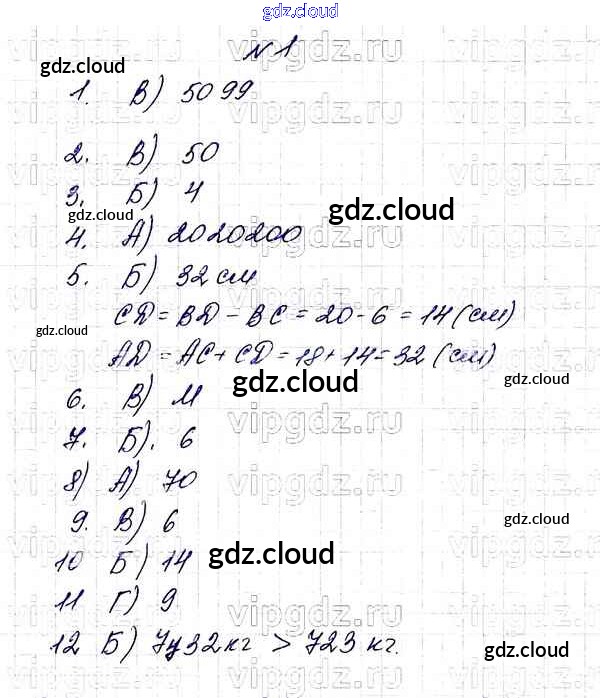 gdz.cloud
№1
gdz.cloud
1. В) 5099
2. В) 50
3. Б) 4
gdz.cloud
gdz.cloud
4. А) 2020200
5. Б) 32 см
CD = BD - BC = 20 - 6 = 14 (см)
gdz.cloud
AD = AC + CD = 18 + 14 = 32 (см)
gdz.cloud
gdz.cloud
6. В) М
7. Б). 6
8) А) 70
9. В) 6
gdz.cloud
10 Б) 14
gdz.cloud
11 Г) 9
12 Б) 7ц32кг > 723 кг.
gdz.cloud
vipgdz.ru